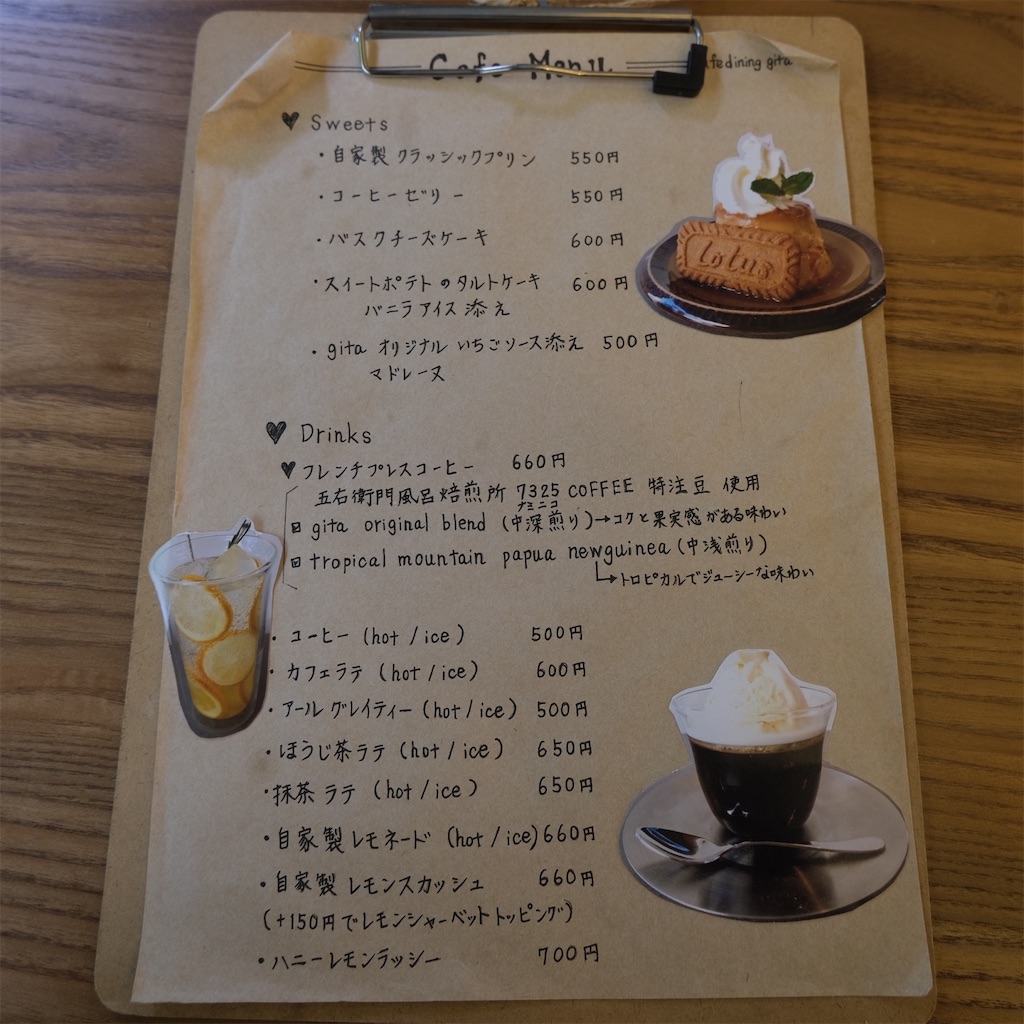 Cafe Menu
cafe dining gita
Sweets
・自家製 クラッシックプリン 550円
・コーヒーゼリー 550円
・バスクチーズケーキ 600円
・スイートポテトのタルトケーキ 600円
バニラアイス添え
・gita オリジナル いちごソース添え 500円
マドレーヌ
Lotus
Drinks
フレンチプレスコーヒー 660円
五右衛門風呂焙煎所 7325 COFFEE 特注豆 使用
ナミニコ
gita original blend (中深煎り)→コクと果実感がある味わい
tropical mountain papua newguinea (中浅煎り)
→トロピカルでジューシーな味わい
・コーヒー (hot / ice) 500円
・カフェラテ (hot / ice) 600円
・アールグレイティー (hot / ice) 500円
・ほうじ茶ラテ (hot / ice) 650円
・抹茶ラテ (hot / ice) 650円
・自家製レモネード (hot / ice) 660円
・自家製レモンスカッシュ 660円
(+150円でレモンシャーベットトッピング)
・ハニーレモンラッシー 700円